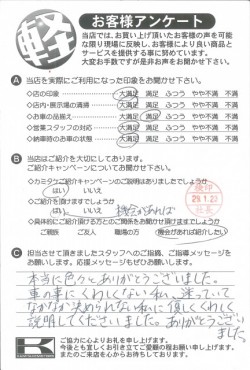 軽
お客様アンケート
当店では、お買い上げ頂いたお客様の声を可能
な限り現場に反映し、お客様により良い商品と
サービスを提供する事に努めています。
大変お手数ですが是非お声をお聞かせ下さい。
A 当店を実際にご利用になった印象をお聞かせ下さい。
◇店の印象 大満足 満足 ふつう やや不満 不満
◇店内・展示場の清掃 大満足 満足 ふつう やや不満 不満
◇お車の品揃え 大満足 満足 ふつう やや不満 不満
◇営業スタッフの対応 大満足 満足 ふつう やや不満 不満
◇納車時のお車の状態 大満足 満足 ふつう やや不満 不満
B 当店はご紹介を大切にしております。
ご紹介キャンペーンについてお聞かせ下さい。
◇カミタケご紹介キャンペーンのご説明はありましたでしょうか
はい いいえ
◇ご紹介を頂けますでしょうか
はい いいえ 機会があれば
◇具体的にご紹介頂ける方との関係をお聞かせ頂けますでしょうか
ご親族 ご友人 職場の方 機会があれば紹介したい
29.1.22
C 担当させて頂きましたスタッフへのご指摘、ご指導メッセージを
お願いします。応援メッセージもぜひお願いします。
本当に色々とありがとうございました。
車の事にくわしくない私、迷っていて
なかなか決められない私に優しくくわしく
説明してくださいました。ありがとうござい
ました
K
ご協力に心よりお礼を申し上げます。
今後とも宜しくお引き立てご愛顧の程お願い申し上げます。
またのご来店を心からお待ちしております。